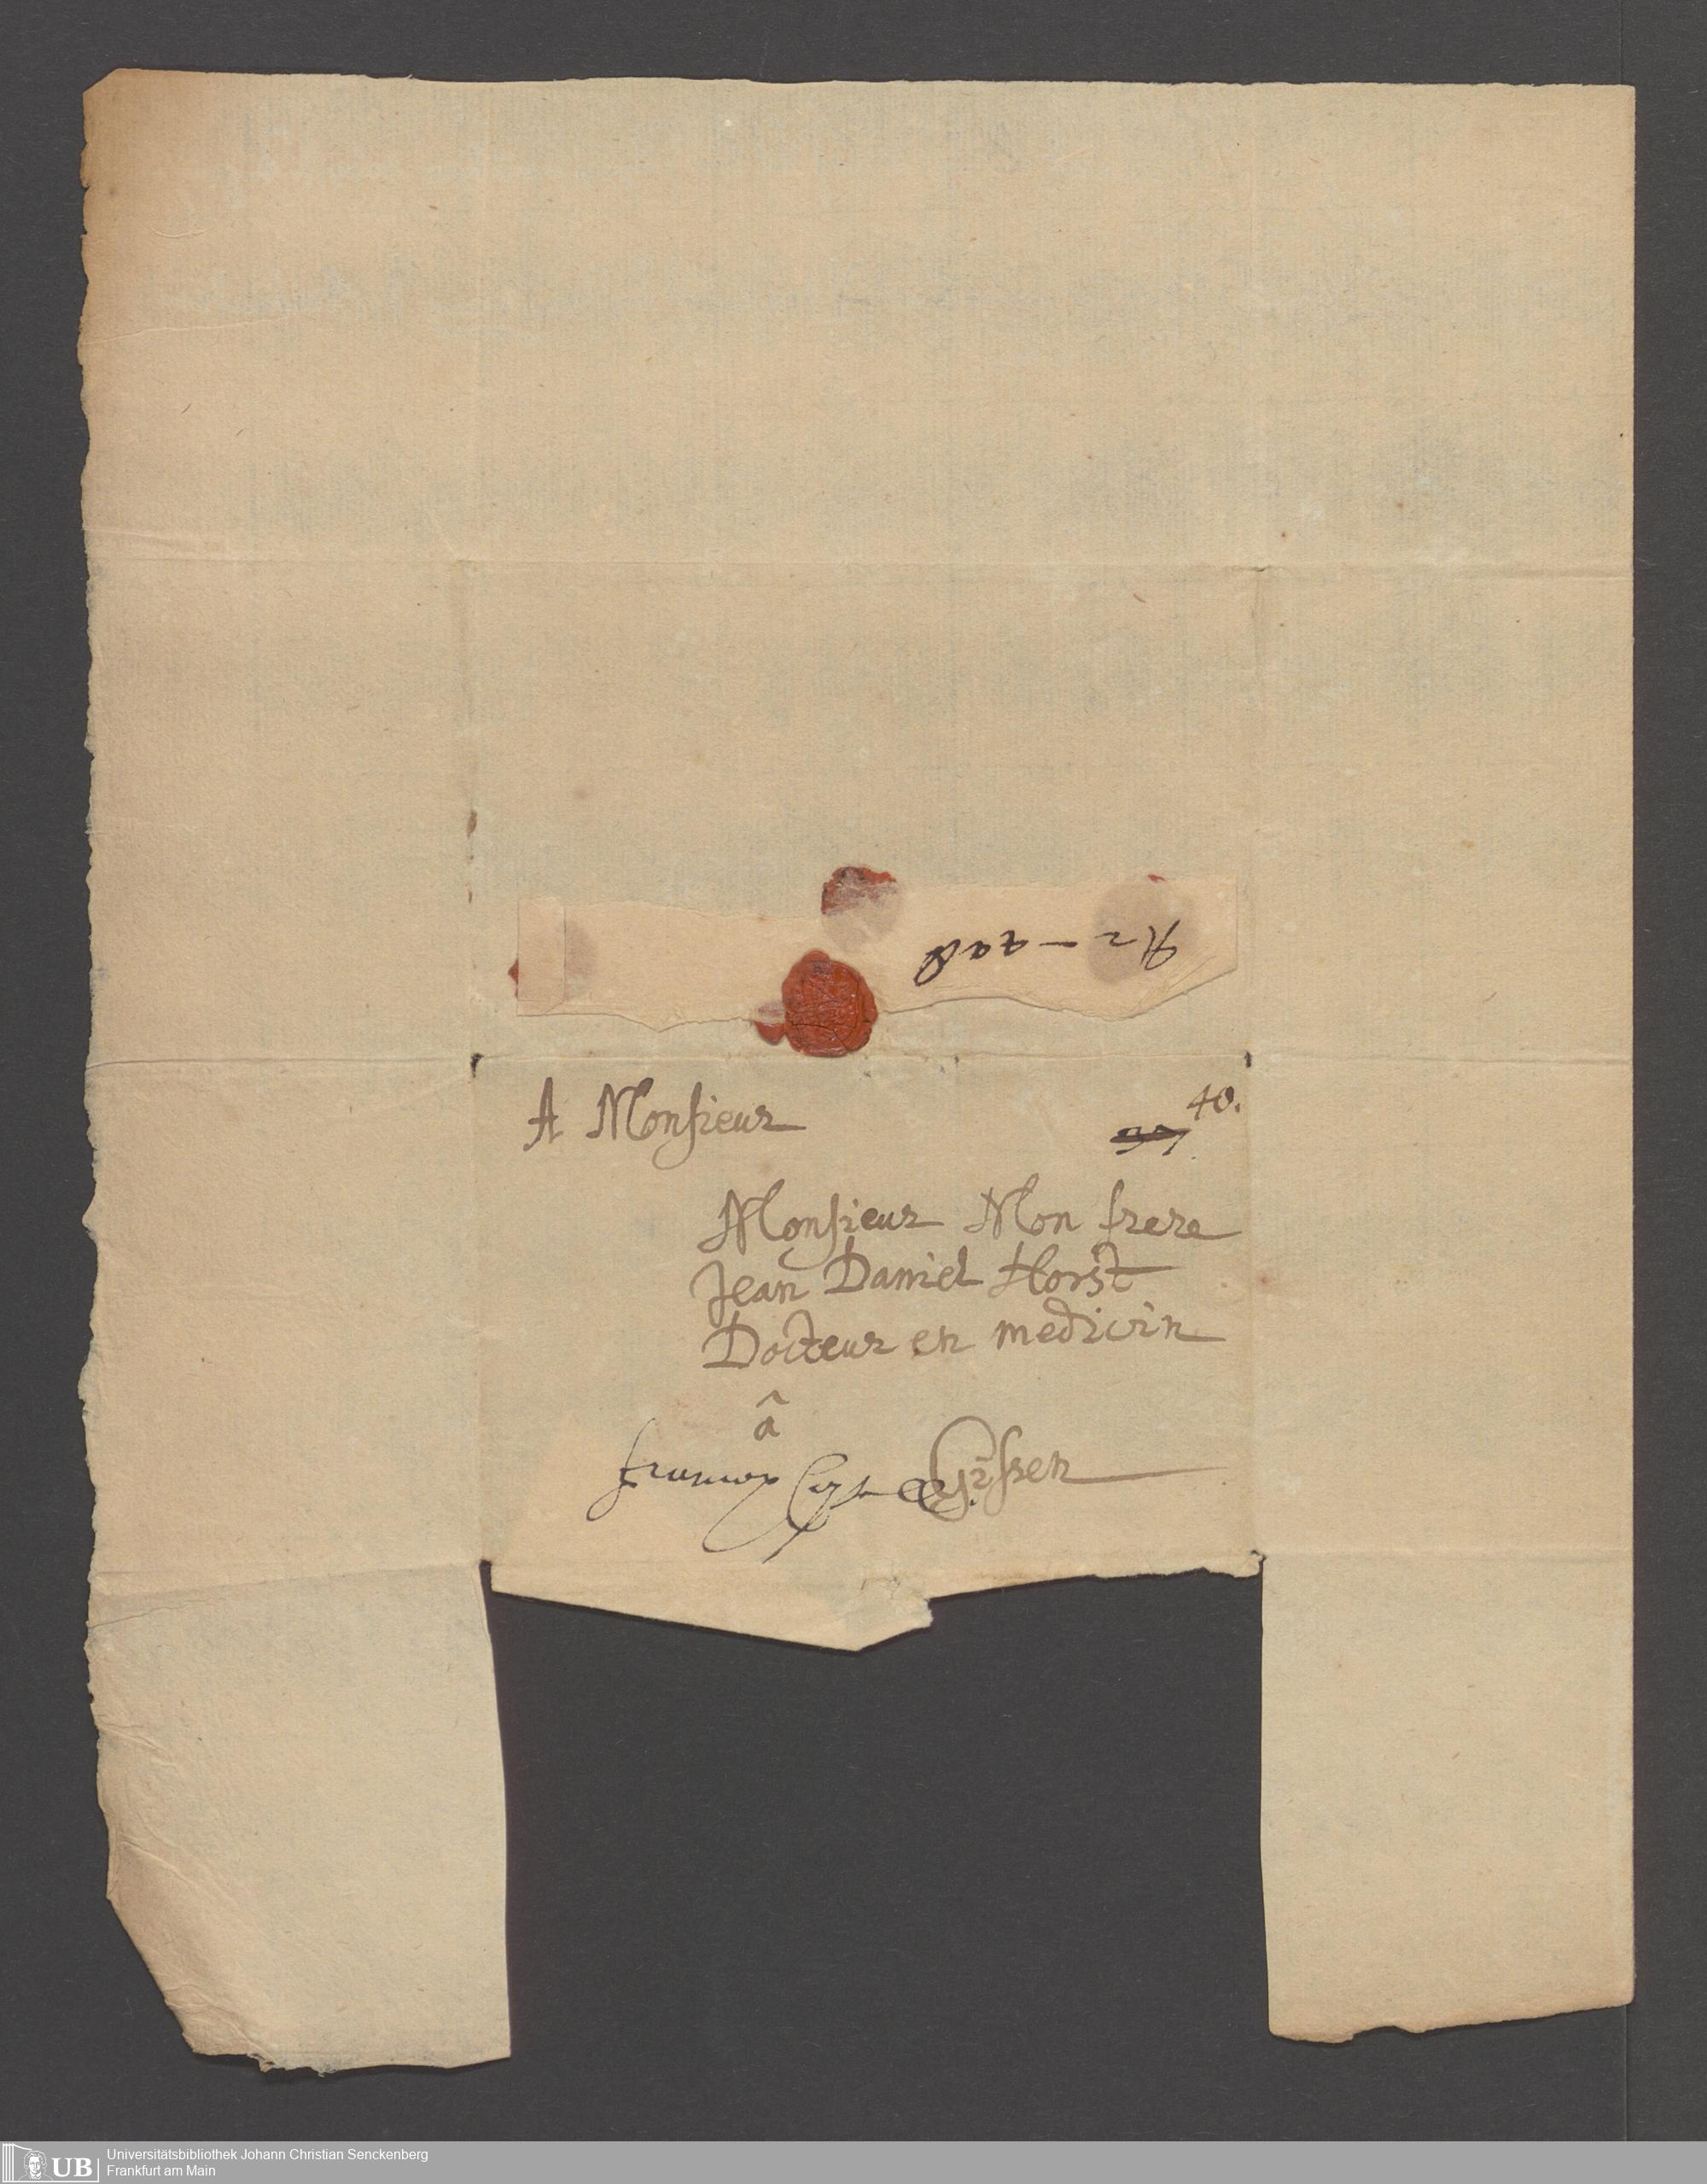 A Monsieur
40.
37.
Monsieur Mon frere
Jean Daniel Horst
Docteur en medicin
â
Gissen
Universitätsbibliothek Johann Christian Senckenberg
Frankfurt am Main
UB